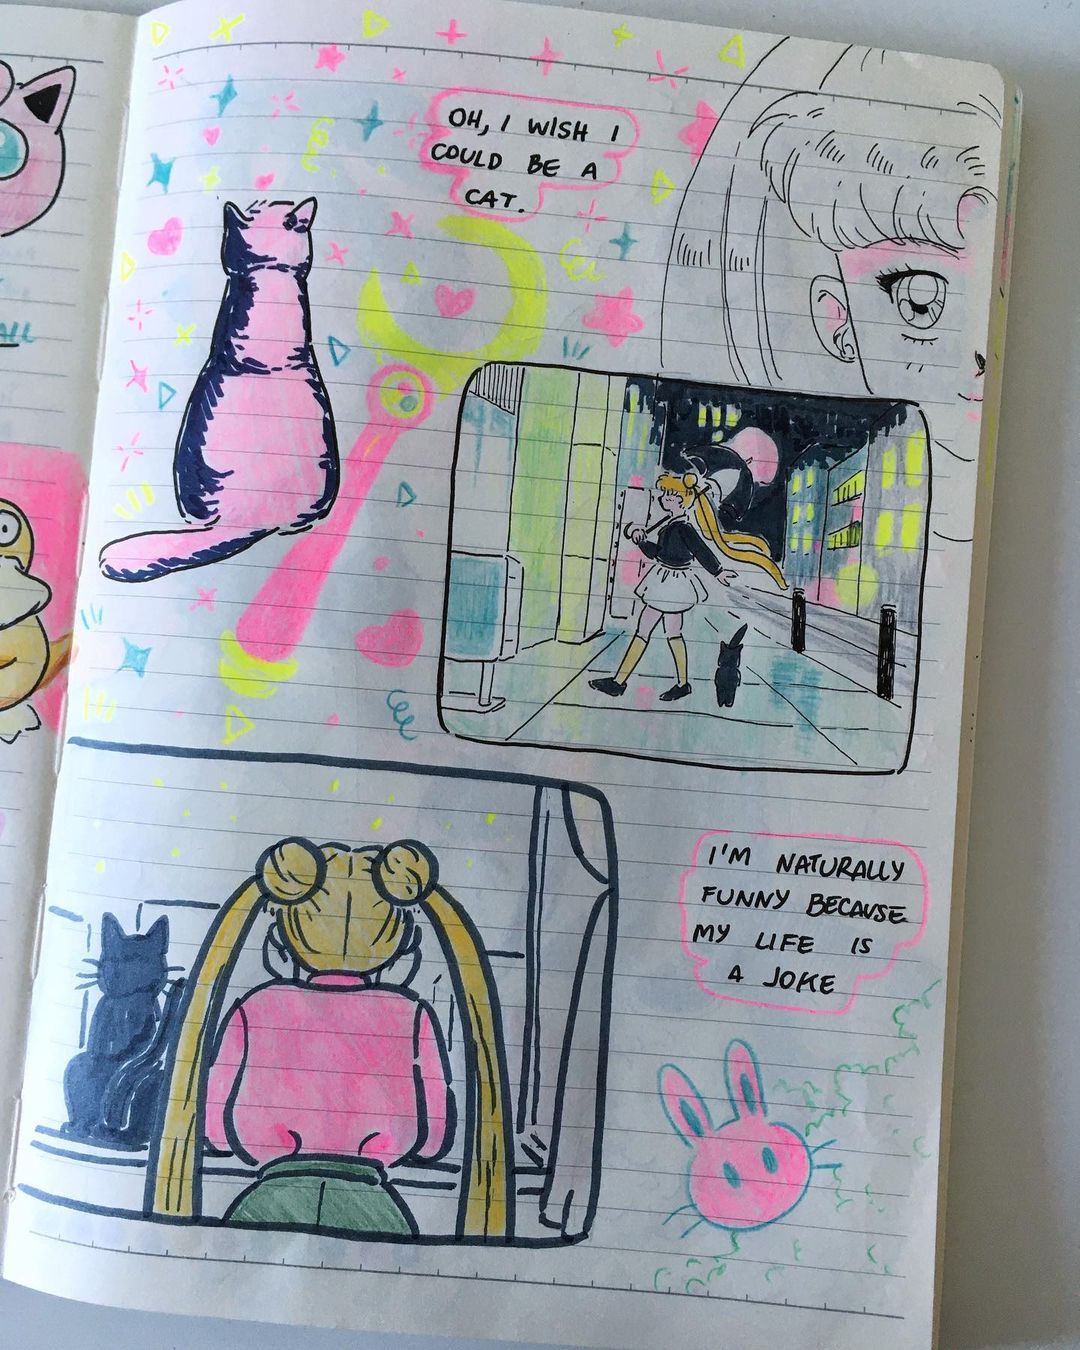 OH, I WISH I
COULD BE A
CAT.
I'M NATURALLY
FUNNY BECAUSE
MY LIFE IS
A JOKE